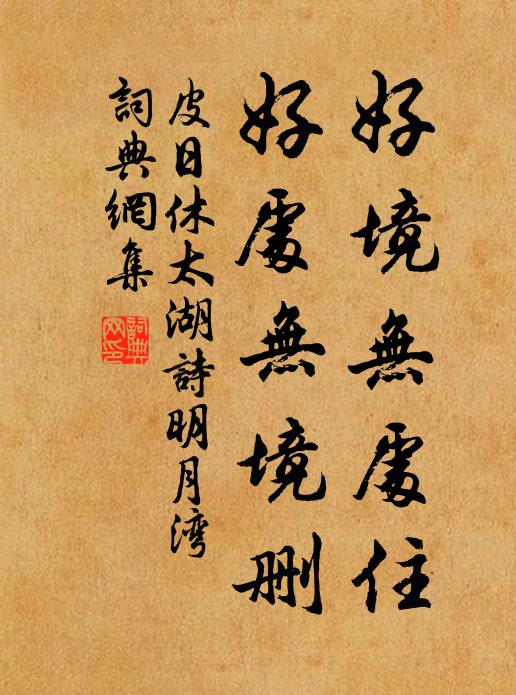 好境無處住
好處無境删
皮日休太湖詩明月湾
詞典網集
詞典网印